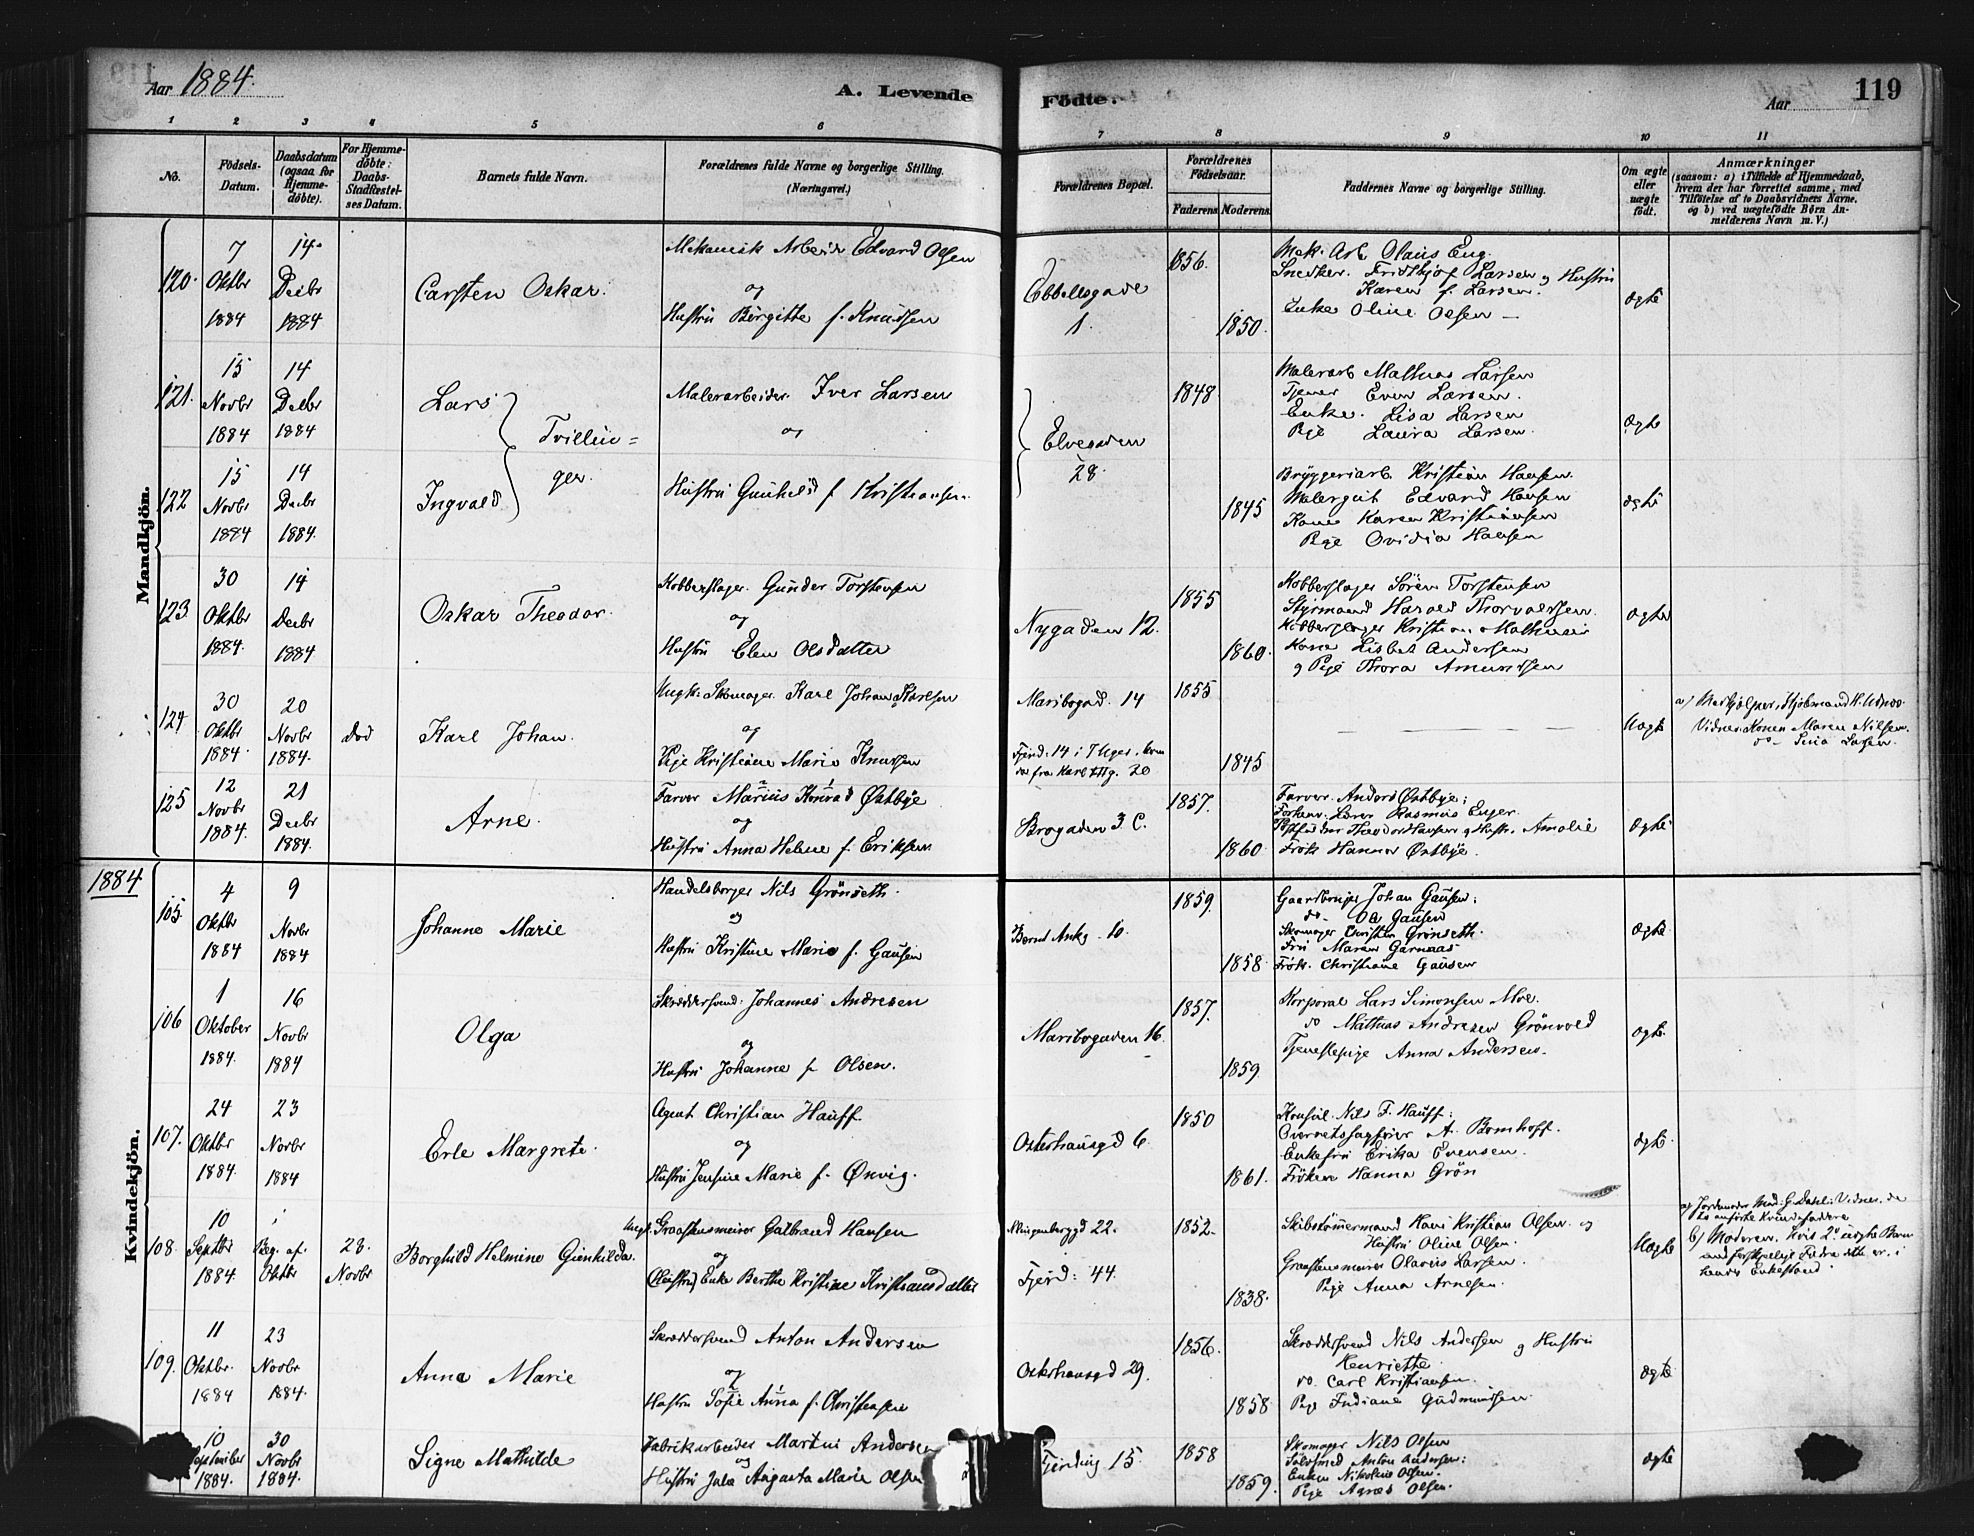 Aar 1884.
A. Levende
Födte.
Aar
119
1 2 3 4 5 6 7 8 9 10 11
No.
Födsels-
Datum.
Daabsdatum
(ogsaa for
Hjemme-
döbte).
For Hjemme-
döbte:
Daabs-
Stadfæstel-
ses Datum.
Barnets fulde Navn.
Forældrenes fulde Navne og borgerlige Stilling.
(Næringsvei.)
Forældrenes Bopæl.
Forældrenes
Födselsaar.
Faderens. Moderens.
Faddernes Navne og borgerlige Stilling.
Om ægte
eller
uægte
födt.
Anmærkninger
(saasom: a) i Tilfælde af Hjemmedaab,
hvem der har forrettet samme, med
Tilföielse af to Daabsvidners Navne.
og b) ved uægtefödte Börn An-
melderens Navn m. V.)
Mandkjön.
120.
7
Oktbr
1884
14
Decbr
1884
Carsten Oskar.
Mekanisk Arbeider Edvard Olsen
og
Hustru Birgitte f. Knudsen
Ebbellsgade
1.
1856.
1850.
Mek. Arb. Olaus Eng.
Snedker. Fridthjof Larsen og Hustru
Karen f. Larsen.
Enke Oline Olsen
ægte
121.
15
Novbr
1884
14
Decbr
1884
Lars
Tvillin=
ger.
Malerarbeider Iver Larsen
og
Elvegaden
28.
1848
Malerarb Mathias Larsen
Tjener Even Larsen.
Enke. Lisa Larsen
Pige Laura Larsen.
Ægte
122
15
Novbr
1884
14
Decbr
1884.
Ingvald
Hustru Gunhild f. Kristiansen.
1845
Bryggeriarb Kristian Hansen.
Malergut Edvard Hansen
Kone Karen Kristiansen
Pige Ovidia Hansen
ægte
123
30
Oktbr
1884.
14
Decbr
1884
Oskar Theodor.
Kobberslager. Gunder Torstensen
og
Hustru Elen Olsdatter
Nygaden 12.
1855
1860.
Kobberslager Sören Torstensen
Styrmand Harald Thorvaldsen.
Kobberslager Kristian Mathisen
Kone Lisbet Andersen
og Pige Thora Amundsen
ægte
124
30
Oktbr
1884.
20
Novbr
1884.
død
Karl Johan.
Ungk. Skomager. Karl Johan Karlsen
og
Pige Kristiane Marie Knudsen
Maribogad. 14
1855
1845
Uægte
Vidner. Konen Maren Nilsen.
do- Lina Larsen.
125
12
Novbr
1884.
21
Decbr
1884.
Arne.
Farver Marius Konrad Østbye
og
Hustru Anna Helene f. Eriksen
Brogaden 3 C.
1857.
1860.
Farver. Anders Østbye;
Forhen. Lærer Rasmus Enger.
Postfuldm Theodor Hansen og Hustr. Amalie
Frök Hanna Østbye.
Ægte
1884
Kvindekjön.
105
4
Oktbr
1884
9
Novbr
1884
Johanne Marie
Handelsborger Nils Grönseth.
og
Hustru Kristine Marie f. Gausen
Bernt Ankg. 10.
1859.
1858.
Gaardbruger Johan Gausen;
do- Ole Gausen
Skomager Christen Grönseth.
Fru Maren Garnaas
Frök. Christiane Gausen
ægte
106
1
Oktober
1884.
16
Novbr
1884
Olga
Skræddersvend. Johannes Andresen
og
Hustru Johanne f. Olsen.
Maribogaden 16.
1857.
1859
Korporal Lars Simonsen Moe.
do Mathias Andresen Grönvold
Tjenestepige Anna Andersen.
ægte
107.
24
Oktbr
1884.
23
Novbr
1884
Erle Margrete.
Agent Christian Hauff.
og
Hustru Jensine Marie f. Ønvig.
Osterhausgd 6.
1850
1861.
Konsul. Nils F. Hauff;
Overretssagförer A. Bomhoff.
Enkefru Erika Evensen.
Fröken Hanna Grön
ægte
108.
10
Septbr
1884.
Beg. af.
Oktbr
23.
Novbr
Borghild Helmine Gunhilda.
Ungk. Graastensmurer Gulbrand Hansen
og
(Hustru) Enke Berthe Kristine Kristiansdatter
22.
Fjerd: 44.
1852.
1838.
Skibstömmermand Hans Kristian Olsen og
Hustru Oline Olsen.
Graastensmurer Olavus Larsen.
Pige Anna Arnesen.
Uægte
a) Jordemoder Mad. G. Dahl. Vidner. de
to anförte Kvindefaddere
b) Moderen. Hvis 2det uægte Barn
med forskjellige Fædre dette er, i
hendes Enkestand.
109.
11
Oktbr.
1884
23
Novbr
1884.
Anna Marie
Skræddersvend Anton Andersen
og
Hustru Sofie Anna f. Christensen
Osterhausgd 29.
1856.
1858
Skræddersvend Nils Andersen og Hustru
Henriette.
do. Carl Kristiansen.
Pige Indiane Gudmundsen
ægte
10
September
1884.
30
Novbr
1884.
Signe Mathilde
Fabrikarbeider Martin Andersen
og
Hustru Julie Augusta Marie Olsen
Fjerding 15.
1858
1859.
Skomager Nils Olsen
Sölvsmed Anton Andersen;
Enken Nikoline Olsen.
Pige Agnes Olsen.
ægte